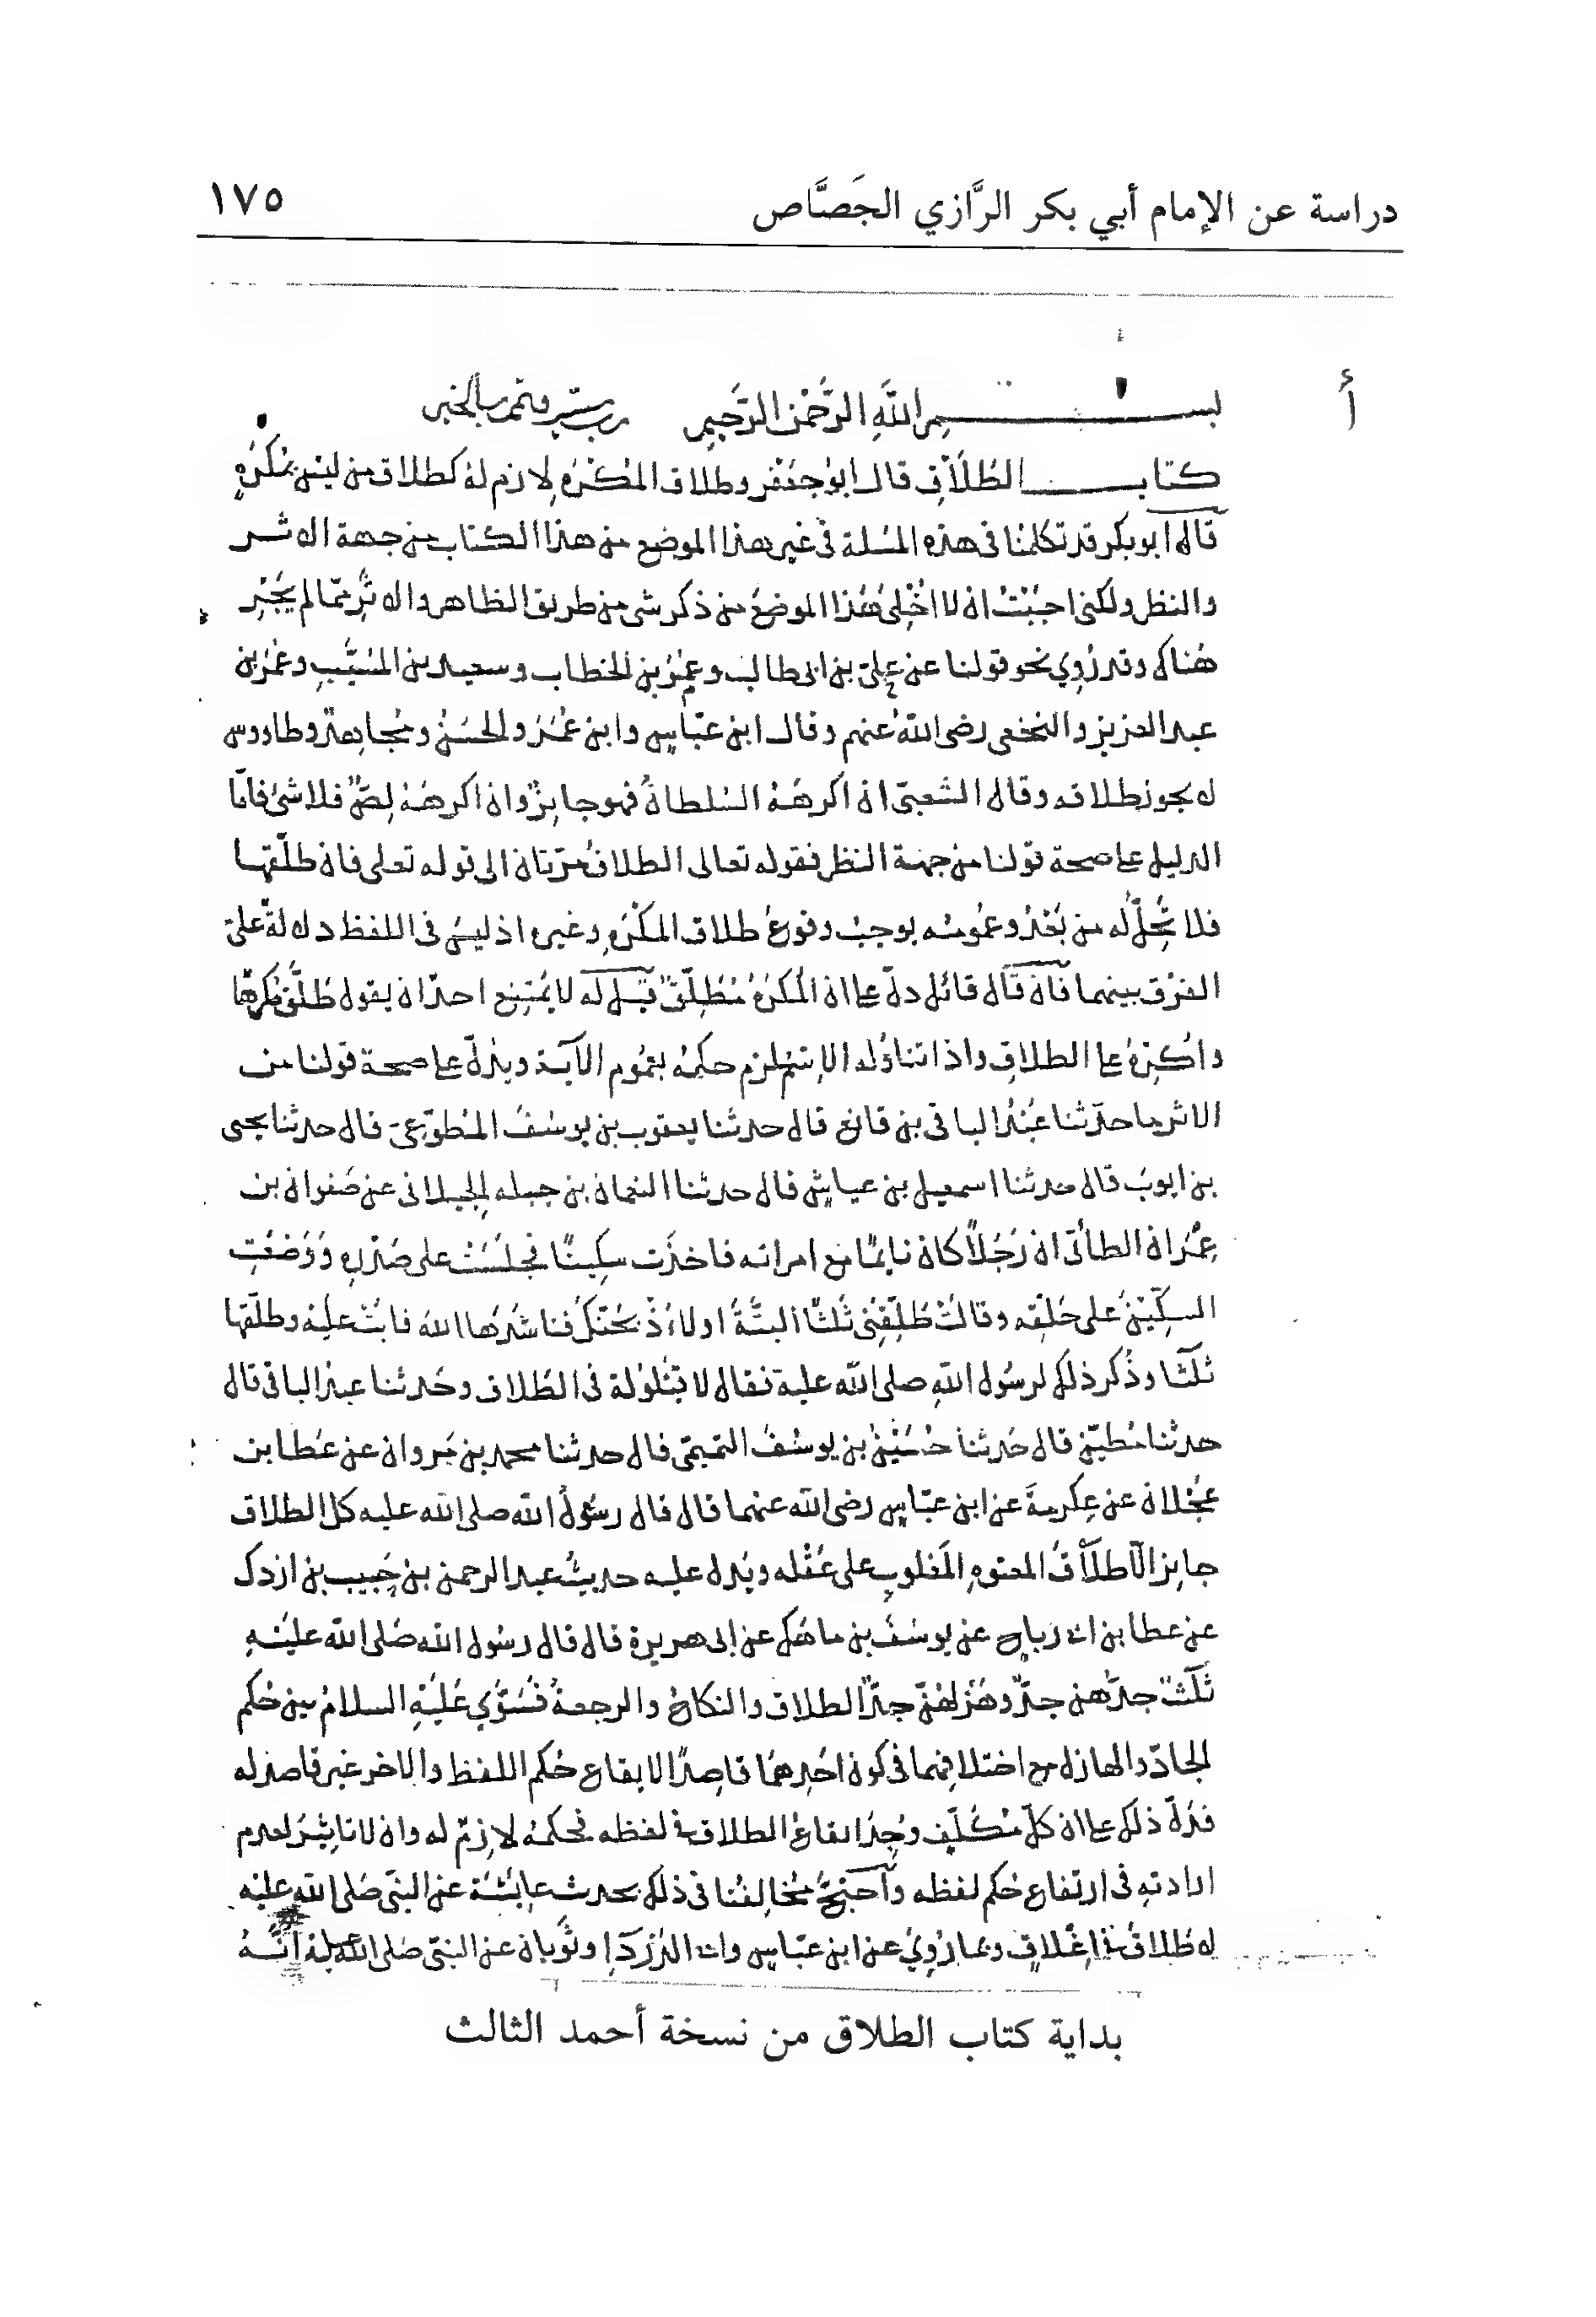 دراسة عن الإمام أبي بكر الرَّازي الجَصَّاص ١٧٥
أ
بسم الله الرَّحمن الرَّحيم رب يسر وتمم بالخير
كتاب الطَّلَاق قال ابو جعفر وطلاق المُكْرَه لازم له كطلاق من ليس بمُكرَه
قال ابو بكر قد تكلمنا في هذه المسلة في غير هذا الموضع من هذا الكتاب من جهة الاثر
والنظر ولكني احببت ان لا اخلي هذا الموضع من ذكر شي من طريق الظاهر والاثر مما لم يجر
هناك وقد روي نحو قولنا عن علي بن ابي طالب وعمر بن الخطاب وسعيد بن المسيب وعمر بن
عبد العزيز والنخعي رضي الله عنهم وقال ابن عباس وابن عمر والحسن ومجاهد وطاووس
لا يجوز طلاقه وقال الشعبي ان اكرهه السلطان فهو جايز وان اكرهه لص فلا شئ فاما
الدليل على صحة قولنا من جهة النظر فقوله تعالى الطلاق مرتان الى قوله تعلى فان طلقها
فلا تحل له من بعد وعمومه يوجب وقوع طلاق المكره وغيره اذ ليس في اللفظ دلالة على
الفرق بينهما فان قال قائل دل على ان المكره مطلق قيل له لا يمتنع احد ان يقول طلق مكرها
واكره على الطلاق واذا تناوله الاسم لزم حكمه بعموم الآية ويدل على صحة قولنا من
الاثر ما حدثنا عبد الباقي بن قانع قال حدثنا يعقوب بن يوسف المطوعي قال حدثنا يحيى
بن ايوب قال حدثنا اسمعيل بن عياش قال حدثنا النعمان بن جبله الجيلاني عن صفوان بن
عمران الطائي ان رجلا كان نايما مع امراته فاخذت سكينا فجلست على صدره ووضعت
السكين على حلقه وقالت طلقني ثلثا البتة او لاذبحنك فناشدها الله فابت عليه وطلقها
ثلثا وذكر ذلك لرسول الله صلى الله عليه فقال لا قيلولة في الطلاق وحدثنا عبد الباقي قال
حدثنا مطين قال حدثنا حسين بن يوسف التميمي قال حدثنا محمد بن مروان عن عطا بن
عجلان عن عكرمة عن ابن عباس رضي الله عنهما قال قال رسول الله صلى الله عليه كل الطلاق
جايز الا طلاق المعتوه المغلوب على عقله ويدل عليه حديث عبد الرحمن بن حبيب بن ازدك
عن عطا بن ابي رباح عن يوسف بن ماهك عن ابي هريرة قال قال رسول الله صلى الله عليه
ثلث جدهن جد وهزلهن جد الطلاق والنكاح والرجعة فسوي عليه السلام بين حكم
الجاد والهازل مع اختلافهما في كون احدهما قاصدا لايقاع حكم اللفظ والاخر غير قاصد له
فدل ذلك على ان كل مكلف وجد ايقاع الطلاق في لفظه فحكمه لازم له وان لا تاثير لعدم
ارادته في ارتفاع حكم لفظه واحتج مخالفنا في ذلك بحديث عايشة عن النبي صلى الله عليه
لا طلاق في اغلاق وبما روي عن ابن عباس وابي الدردا وثوبان عن النبي صلى الله عليه انه
بداية كتاب الطلاق من نسخة أحمد الثالث